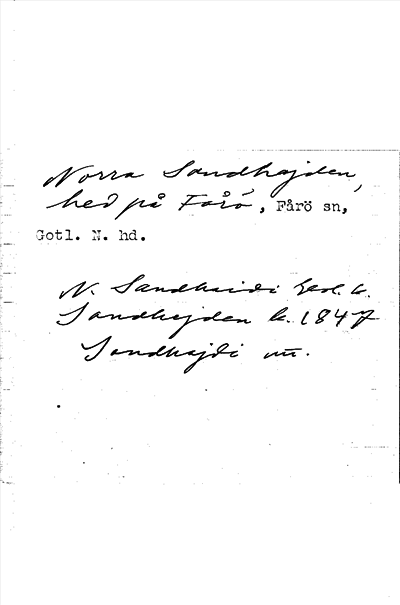 Norra Sandhajden,
hed på Fårö, Fårö sn,
Gotl. N. hd.
N. Sandhaidi Geol. k.
Sandhejden k. 1847
Sandhajdi